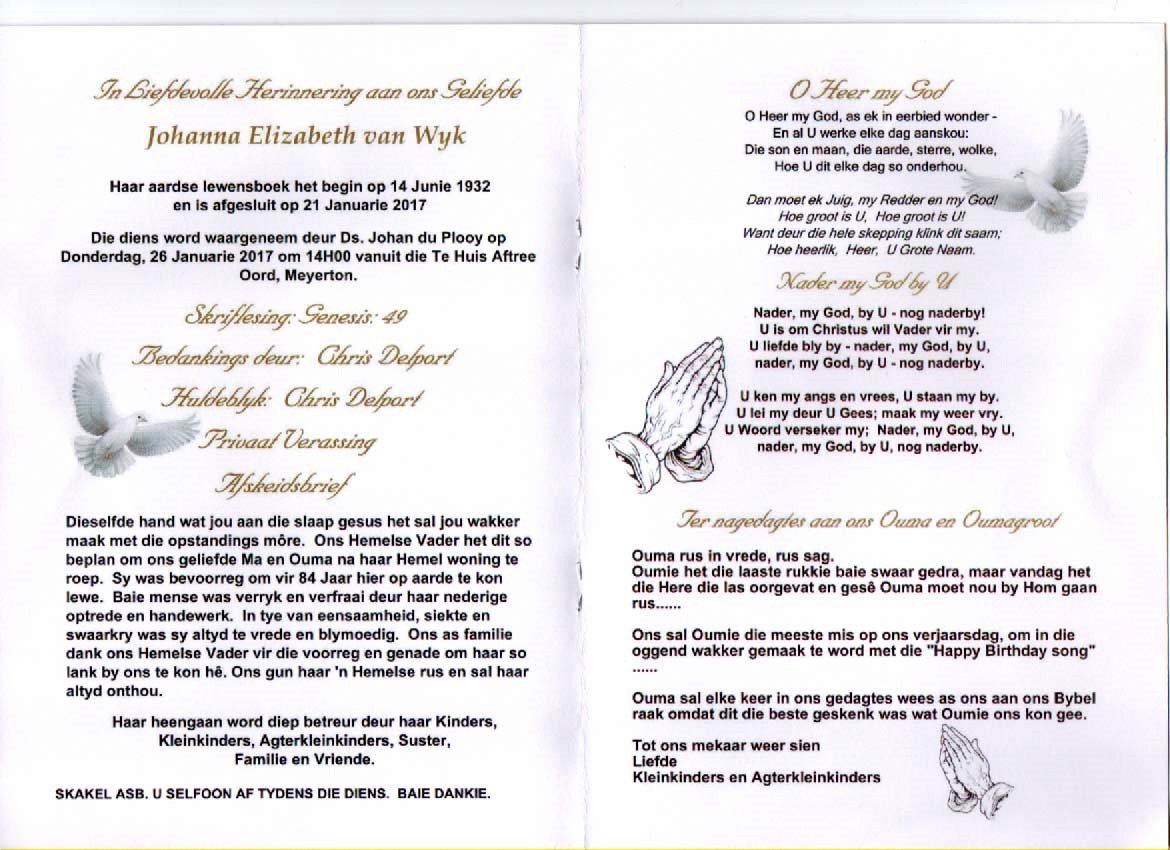 In Liefdevolle Herinnering aan ons Geliefde
Johanna Elizabeth van Wyk
Haar aardse lewensboek het begin op 14 Junie 1932
en is afgesluit op 21 Januarie 2017
Die diens word waargeneem deur Ds. Johan du Plooy op
Donderdag, 26 Januarie 2017 om 14H00 vanuit die Te Huis Aftree
Oord, Meyerton.
Skriflesing: Genesis: 49
Bedankings deur: Chris Delport
Huldeblyk: Chris Delport
Privaat Verassing
Afskeidsbrief
Dieselfde hand wat jou aan die slaap gesus het sal jou wakker
maak met die opstandings môre. Ons Hemelse Vader het dit so
beplan om ons geliefde Ma en Ouma na haar Hemel woning te
roep. Sy was bevoorreg om vir 84 Jaar hier op aarde te kon
lewe. Baie mense was verryk en verfraai deur haar nederige
optrede en handewerk. In tye van eensaamheid, siekte en
swaarkry was sy altyd te vrede en blymoedig. Ons as familie
dank ons Hemelse Vader vir die voorreg en genade om haar so
lank by ons te kon hê. Ons gun haar 'n Hemelse rus en sal haar
altyd onthou.
Haar heengaan word diep betreur deur haar Kinders,
Kleinkinders, Agterkleinkinders, Suster,
Familie en Vriende.
SKAKEL ASB. U SELFOON AF TYDENS DIE DIENS. BAIE DANKIE.
O Heer my God
O Heer my God, as ek in eerbied wonder -
En al U werke elke dag aanskou:
Die son en maan, die aarde, sterre, wolke,
Hoe U dit elke dag so onderhou.
Dan moet ek Juig, my Redder en my God!
Hoe groot is U, Hoe groot is U!
Want deur die hele skepping klink dit saam;
Hoe heerlik, Heer, U Grote Naam.
Nader my God by U
Nader, my God, by U - nog naderby!
U is om Christus wil Vader vir my.
U liefde bly by - nader, my God, by U,
nader, my God, by U - nog naderby.
U ken my angs en vrees, U staan my by.
U lei my deur U Gees; maak my weer vry.
U Woord verseker my; Nader, my God, by U,
nader, my God, by U, nog naderby.
Ter nagedagtes aan ons Ouma en Oumagroot
Ouma rus in vrede, rus sag.
Oumie het die laaste rukkie baie swaar gedra, maar vandag het
die Here die las oorgevat en gesê Ouma moet nou by Hom gaan
rus......
Ons sal Oumie die meeste mis op ons verjaarsdag, om in die
oggend wakker gemaak te word met die "Happy Birthday song"
......
Ouma sal elke keer in ons gedagtes wees as ons aan ons Bybel
raak omdat dit die beste geskenk was wat Oumie ons kon gee.
Tot ons mekaar weer sien
Liefde
Kleinkinders en Agterkleinkinders